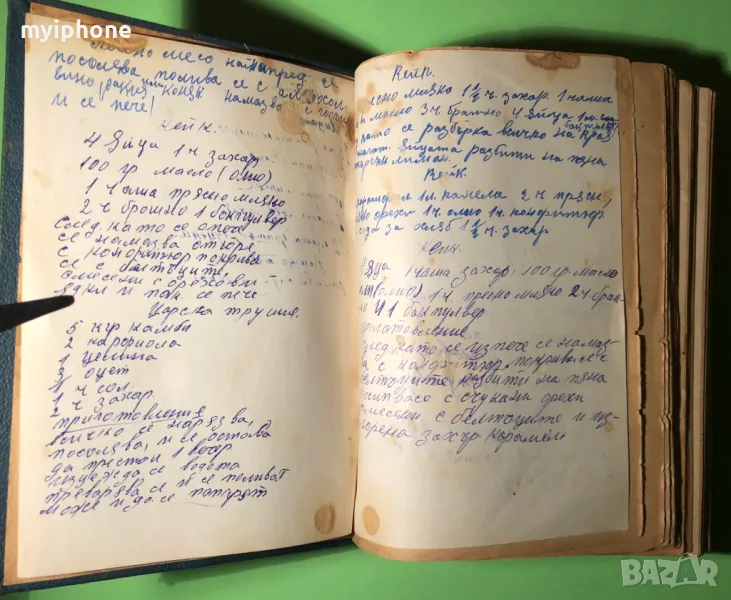 myiphone
месо на на пред се
посолява полива се с алкохол
вино, ракия или коняк. намазва с горчица
и се пече!
Кейк.
4 яйца 1 ч захар
100 гр масло (олио)
1 чаша прясно мляко
2 ч брашно 1 бакпулвер
след като се опече
се намазва отгоре
с конфитюр покрива
се с белтъците
смесени с орехови
ядки и пак се пече
Царска трушия.
5 кгр камби
2 карфиола
1 целина
3 оцет
1 ч сол.
2 ч захар
приготовление
всичко се нарязва,
посолява, и се оставя
да престои 1 вечер
изцежда се водата
преварява се и се поливат
може и да се попарят
Кейк.
мляко 1 1/2 ч. захар. 1
масло 3 ч. брашно 4 яйца
като се разбърка всичко на края
яйцата разбити на пяна
лимон.
Кейк
1 л. канела 2 ч прясно
орехи 1 ч. олио 1 ч. конфитюр
сода за хляб 1 1/2 ч. захар
Кейк
4 яйца 1 чаша захар. 100 гр. масло
(олио) 1 ч. прясно мляко 2 ч бра-
но и 1 бакпулвер
приготовление
след като се изпече се намаз-
ва с конфитюр покрива се с
белтъците разбити на пяна
с счукани орехи
смесени с белтъците и из-
горена захар карамел
BAZAR